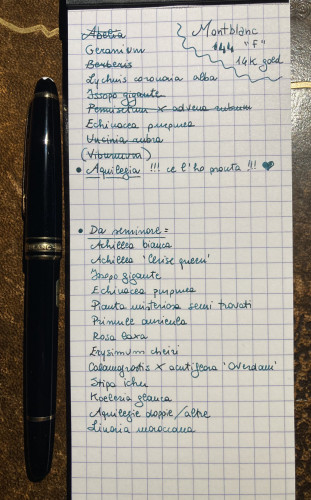 Abelia
Geranium
Berberis
Lychnis coronaria alba
Issopo gigante
Pennisetum x advena rubrum
Echinacea purpurea
Uncinia rubra
(Viburnum)
• Aquilegia !!! ce l'ho pronta !!! ♥
Montblanc
144 "F"
14K gold
• Da seminare:
Achillea bianca
Achillea 'Cerise queen'
Issopo gigante
Echinacea purpurea
Pianta misteriosa semi trovati
Primule auricula
Rosa laxa
Erysimum cheiri
Calamagrostis x acutiflora 'Overdam'
Stipa ichu
Koeleria glauca
Aquilegie doppie/altre
Linaria maroccana